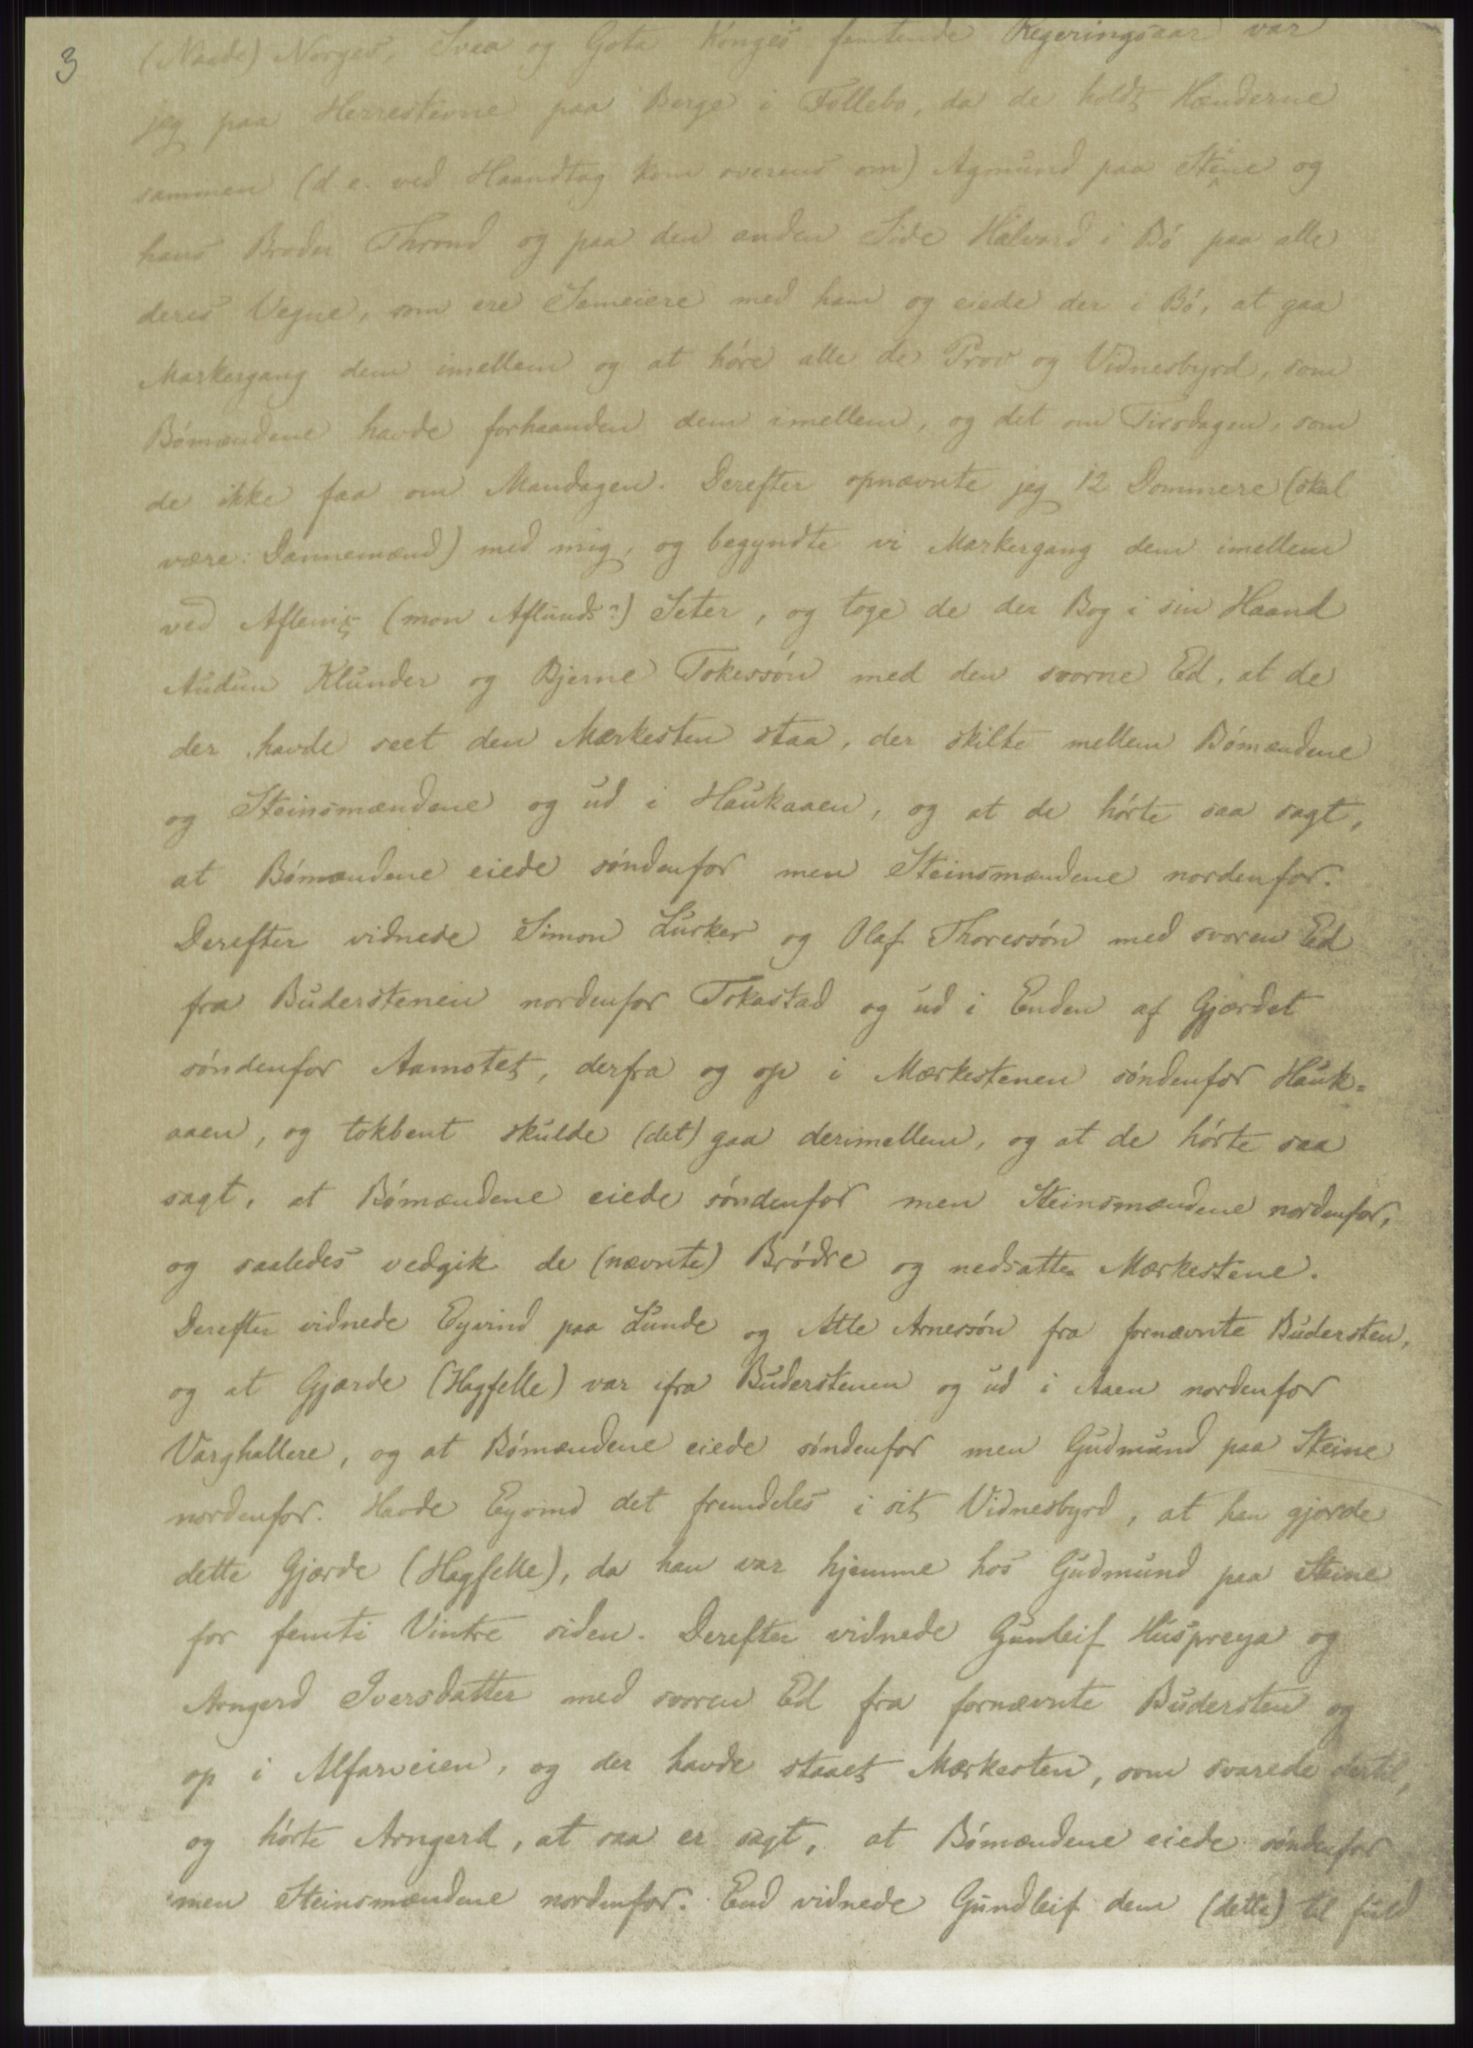 3
(Naade) Norges, Svea og Gota Konges femtende Regeringsaar var
jeg paa Herrestevne paa Berge i Follebo, da de holdt Hænderne
sammen (d. e. ved Haandtag kom overens om) Agmund paa Steine og
hans Broder Thrond og paa den anden Side Halvard i Bó paa alle
deres Vegne, som ere Sameiere med ham og eiede der i Bó, at gaa
Markergang dem imellem og at høre alle de Prov og Vidnesbyrd, som
Bómændene havde forhaanden dem imellem, og det om Tirsdagen, som
de ikke faa om Mandagen. Derefter opnævnte jeg 12 Dommere (skal
være: Dannemænd) med mig, og begyndte vi Markergang dem imellem
ved Aflenis (mon Aflunds?) Seter, og toge de der Bog i sin Haand
Audun Klunder og Bjerne Tokessón med den svorne Ed, at de
der havde seet den Mærkesten staa, der skilte mellem Bómændene
og Steinsmændene og ud i Haukaaen, og at de hórte saa sagt,
at Bómændene eiede sóndenfor men Steinsmændene nordenfor.
Derefter vidnede Simon Lurker og Olaf Thoressón med svoren Ed
fra Buderstenen nordenfor Tokastad og ud i Enden af Gjærdet
sóndenfor Aamotet, derfra og op i Mærkestenen sóndenfor Hauk-
aaen, og tokbent skulde (det) gaa derimellem, og at de hórte saa
sagt, at Bómændene eiede sóndenfor men Steinsmændene nordenfor,
og saaledes vedgik de (nævnte) Bródre og nedsatte Mærkestene.
Derefter vidnede Eyvind paa Lunde og Atle Arnessón fra fornævnte Budersten,
og at Gjærde (Hagfelle) var ifra Buderstenen og ud i Aaen nordenfor
Varghallere, og at Bómændene eiede sóndenfor men Gudmund paa Steine
nordenfor. Havde Eyvind det fremdeles i sit Vidnesbyrd, at han gjorde
dette Gjærde (Hagfelle), da han var hjemme hos Gudmund paa Steine
for femti Vintre siden. Derefter vidnede Gunleif Huspreya og
Arngerd Iversdatter med svoren Ed fra fornævnte Budersten og
op i Alfarveien, og der havde staaet Mærkesten, som svarede dertil,
og hórte Arngerd, at saa er sagt, at Bómændene eiede sóndenfor
men Steinsmændene nordenfor. End vidnede Gundleif dem (dette) til fuld